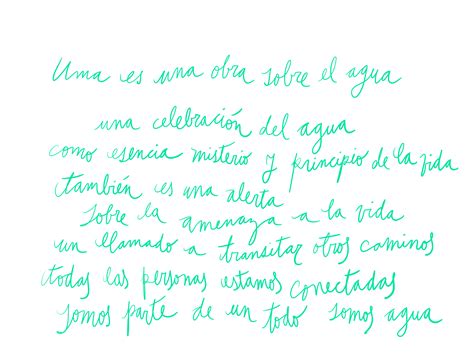 Uma es una obra sobre el agua
una celebración del agua
como esencia misterio y principio de la vida
también es una alerta
sobre la amenaza a la vida
un llamado a transitar otros caminos
todas las personas estamos conectadas
somos parte de un todo somos agua